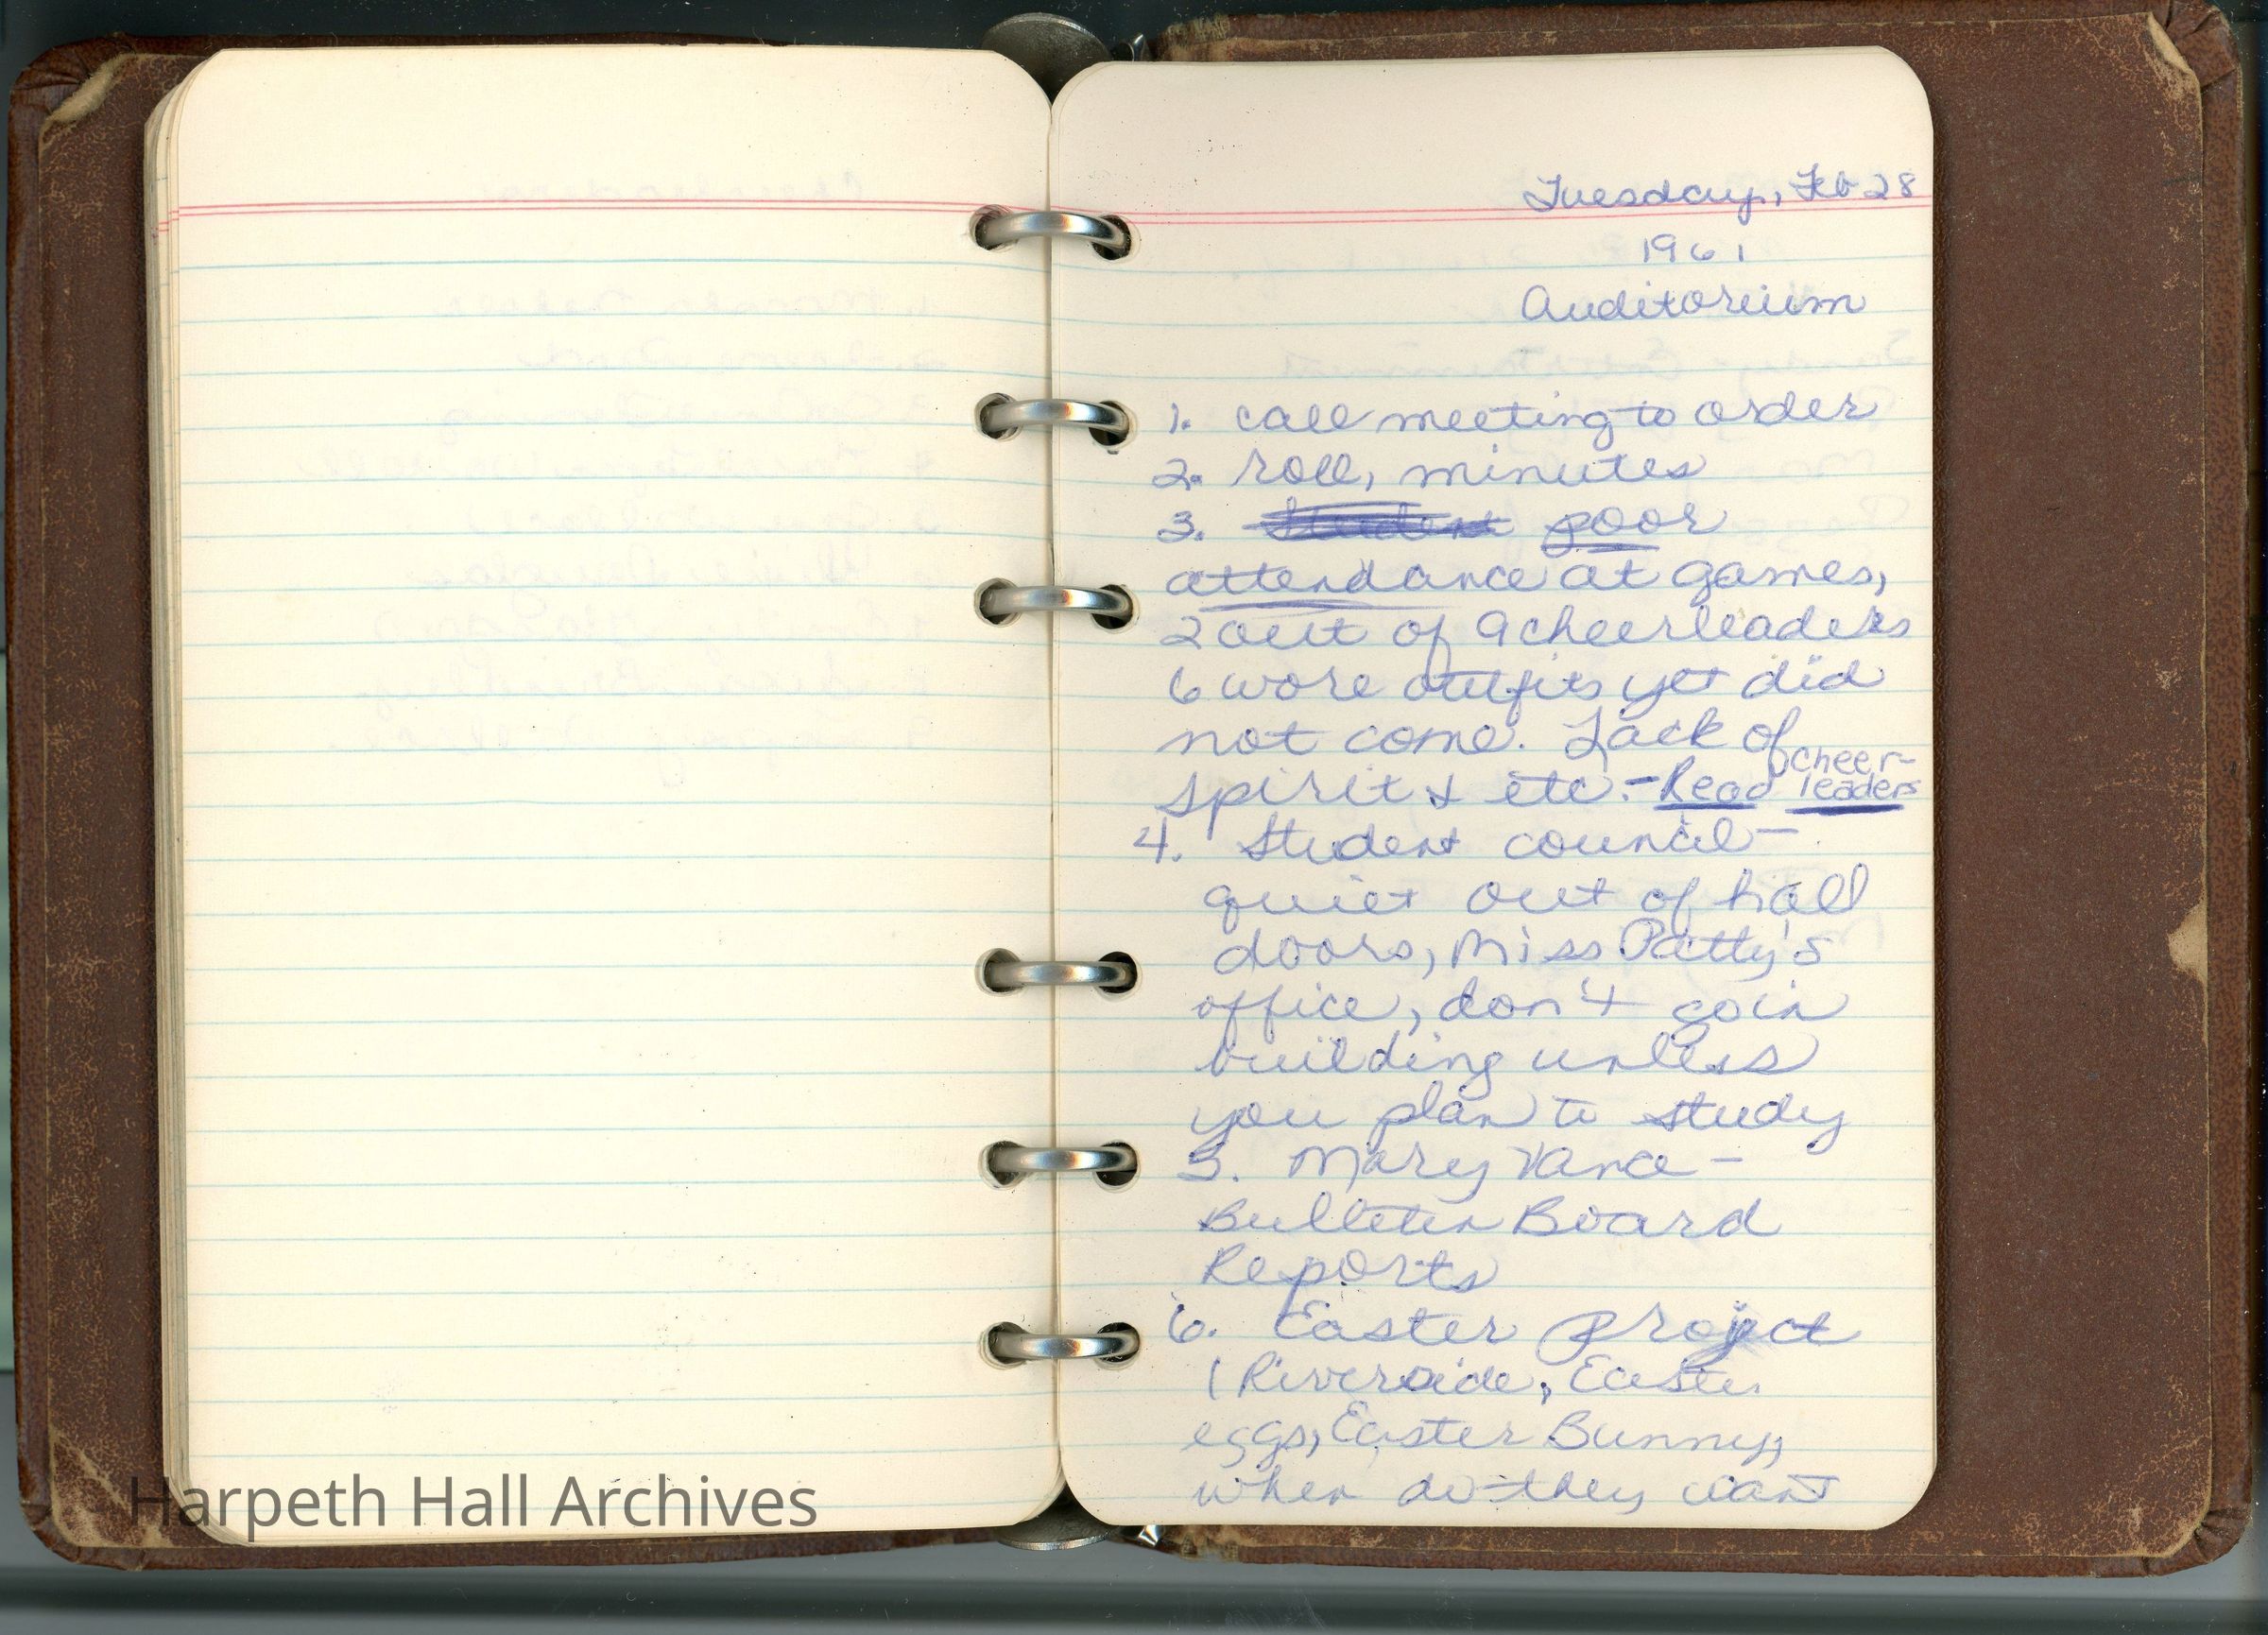 Tuesday, Feb 28
1961
Auditorium
1. call meeting to order
2. roll, minutes
3. Student poor
attendance at games,
2 out of 9 cheerleaders
6 wore outfits yet did
not come. Lack of
spirit & etc. - Read cheer-
leaders
4. Student council -
quiet out of hall
doors, Miss Patty's
office, don't go in
building unless
you plan to study
5. Mary Vance -
Bulletin Board
Reports
6. Easter Project
(Riverside, Easter
eggs, Easter Bunny,
when do they want
Harpeth Hall Archives